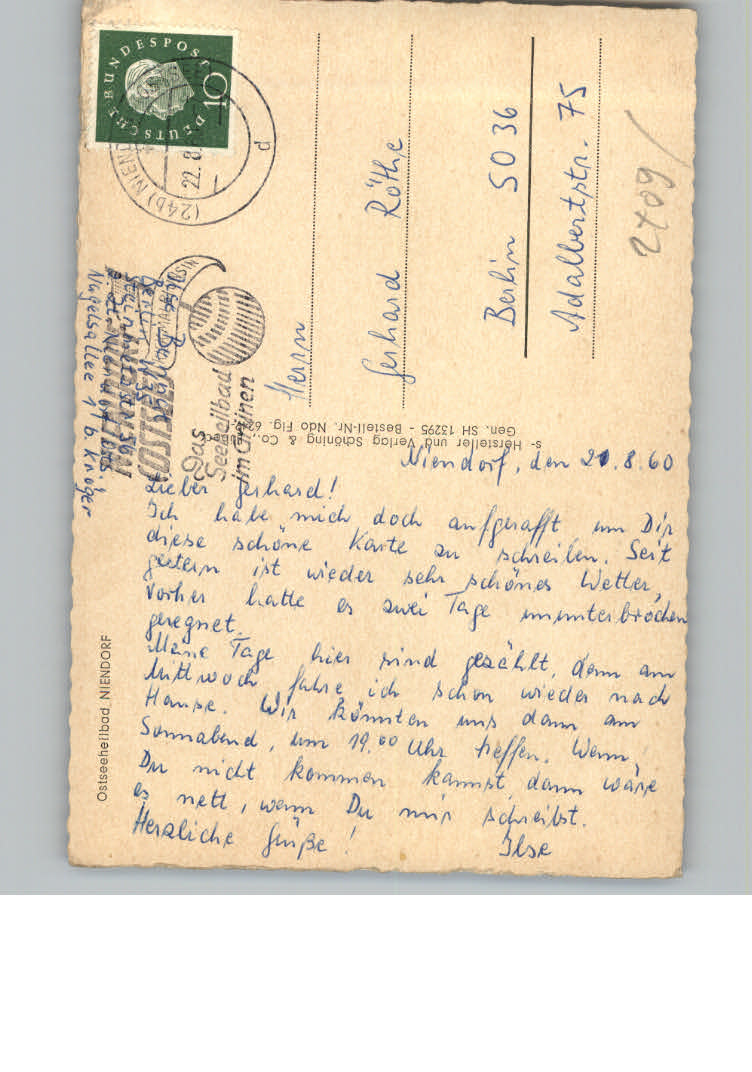 Niendorf, den 21.8.60
Lieber Gerhard!
Ich habe mich doch aufgerafft um Dir
diese schöne Karte zu schreiben. Seit
gestern ist wieder sehr schönes Wetter,
vorher hatte es zwei Tage ununterbrochen
geregnet.
Meine Tage hier sind gezählt, denn am
Mittwoch fahre ich schon wieder nach
Hause. Wir könnten uns dann am
Sonnabend, um 19.00 Uhr treffen. Wenn
Du nicht kommen kannst, dann wäre
es nett, wenn Du mir schreibst.
Herzliche Grüße! Ilse
Ostseeheilbad NIENDORF
Hersteller und Verlag Schöning & Co., Lübeck
Gen. SH 13295 - Bestell-Nr. Ndo Flg. 62
Herrn
Gerhard Röthe
Berlin SO 36
Adalbertstr. 75
2409
DEUTSCHE BUNDESPOST
10
(24b) NIENDORF
22.8.
d
Das
Seeheilbad
im Grünen
OSTSEE
Ilse
Berlin W 35
z. Zt. Niendorf/Ots
Nagelsallee 11 b. Kröger